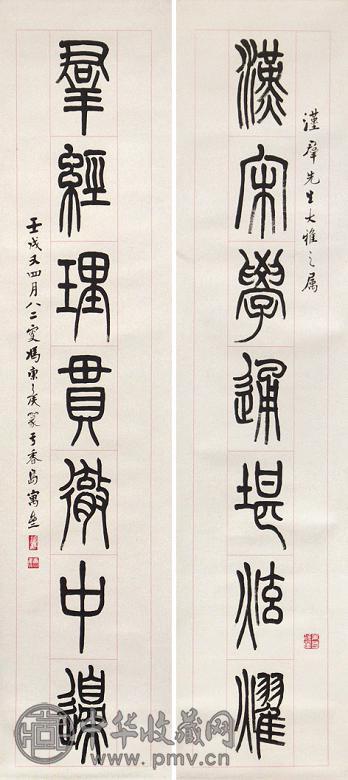 漢羣先生大雅之属
漢宋學通堪炫耀
羣經理貫徹中邊
壬戌又四月八二叟馮康侯篆于香島寓
中华收藏网
www.pmv.cn